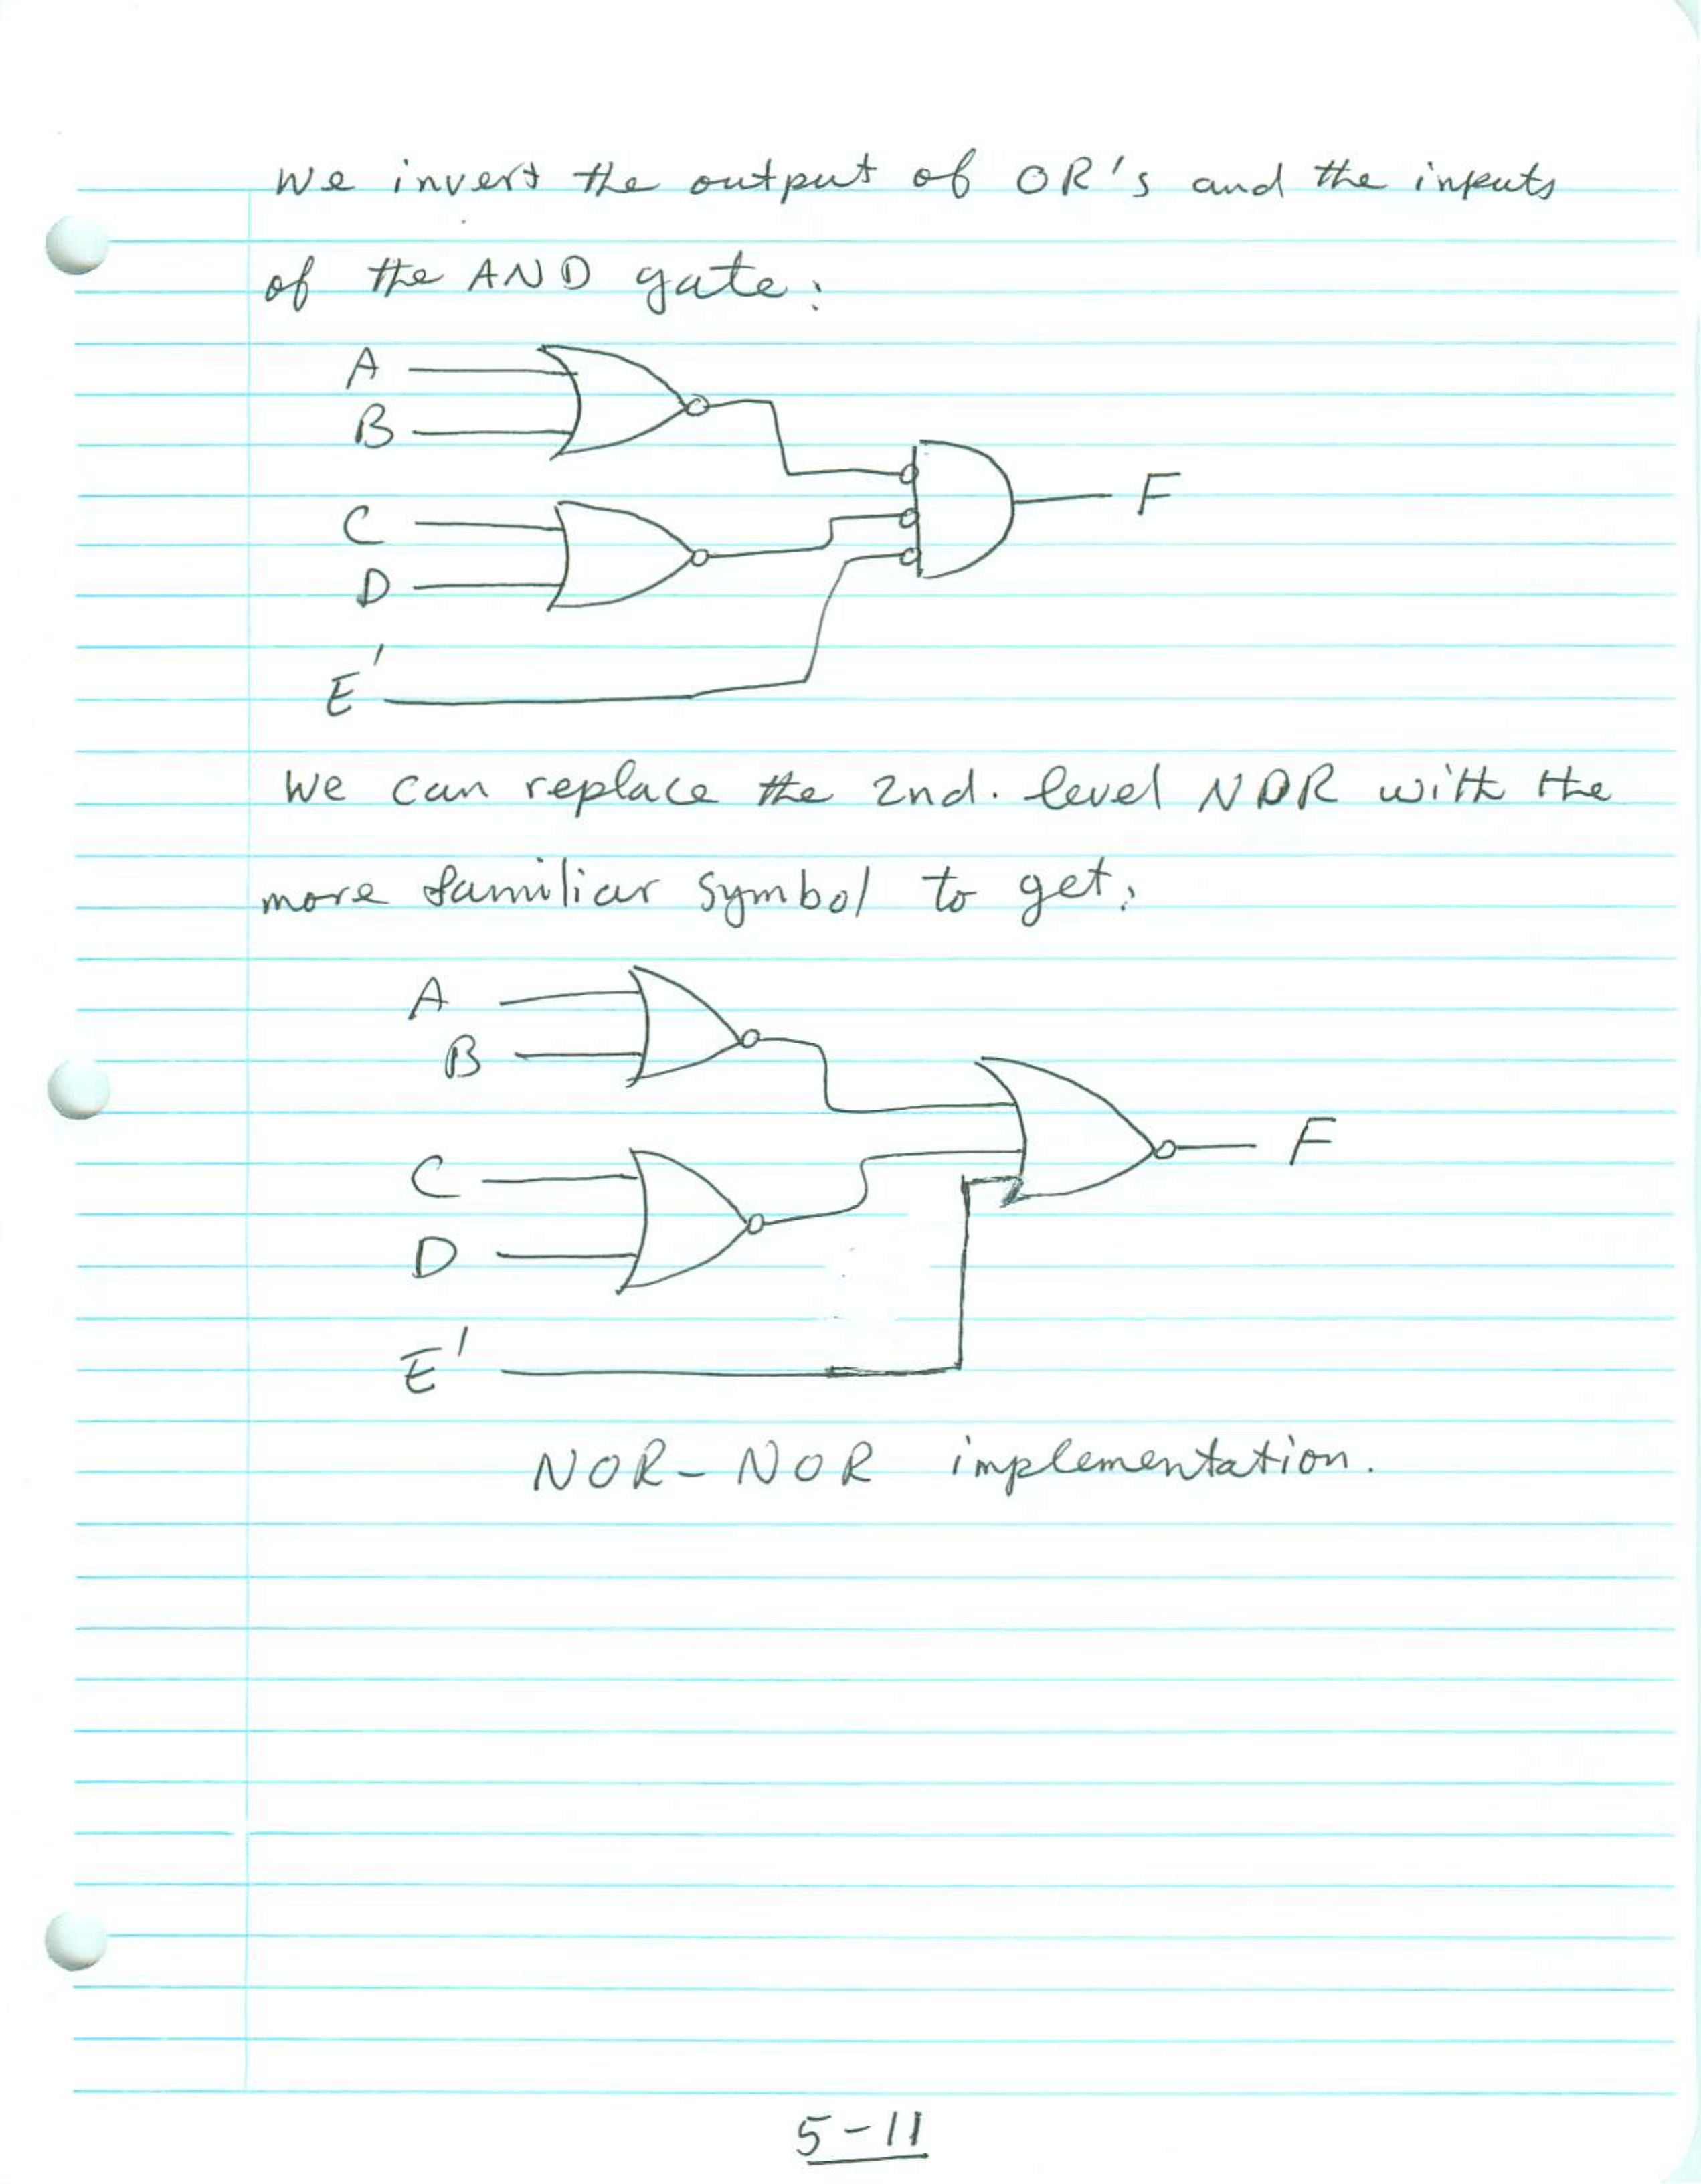 We invert the output of OR's and the inputs
of the AND gate:
A
B
C
D
E'
F
We can replace the 2nd. level NOR with the
more familiar symbol to get:
A
B
C
D
E'
F
NOR-NOR implementation.
5-11